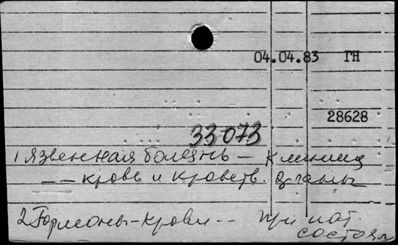 04.04.83 ГН
28628
33-073
1 Язвенная болезнь – клиник
-- кровь и кроветв. органы
2 Гормоны-крови -- при пат.
состоян